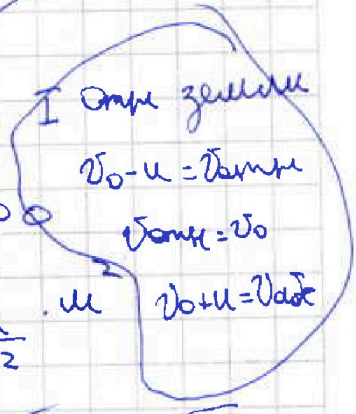 I отн земли
v₀-u = vотн
vотн = v₀
2
.u v₀+u = vабс
2